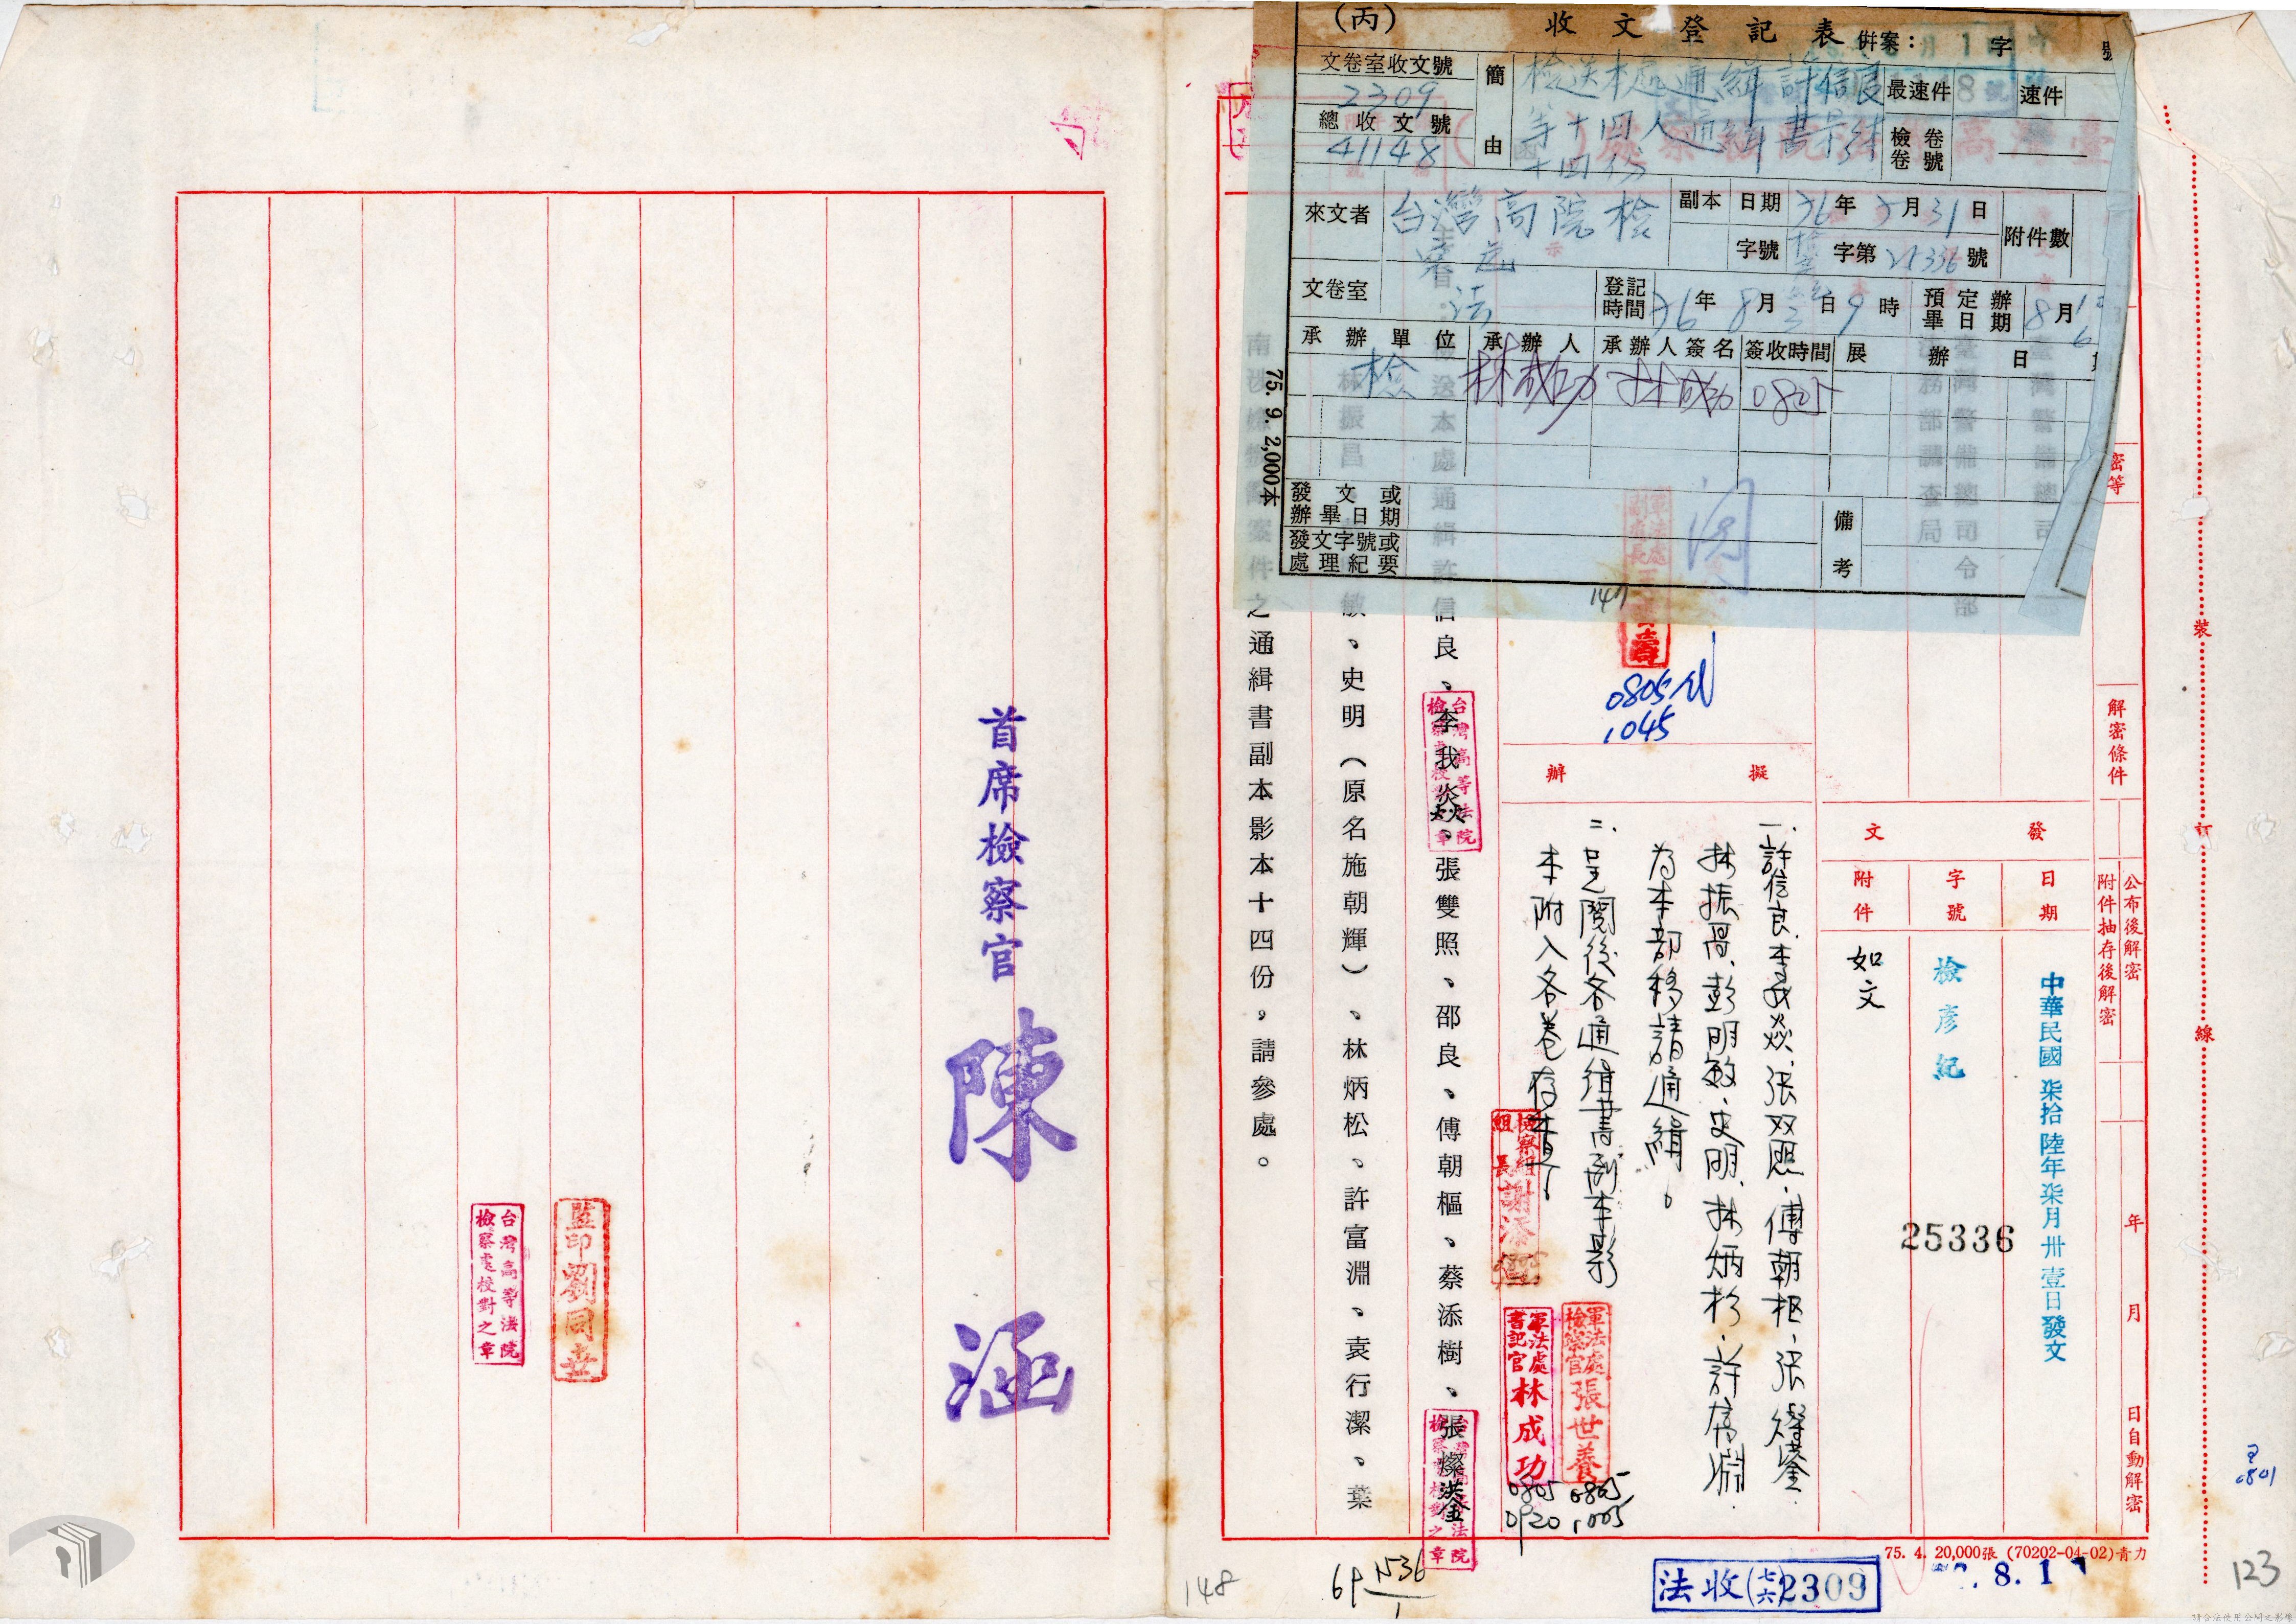 (丙)
收文登記表
併案：
字
號
文卷室收文號
2309
總收文號
41148
簡由
檢送本處通緝許信良
等十四人通緝書影本
十四份
最速件
速件
檢卷
卷號
來文者
台灣高院檢
副本
日期
76年7月31日
字號
字第25336號
附件數
文卷室
法
登記時間
76年8月 日9時
預定辦畢日期
8月
承辦單位
承辦人
承辦人簽名
簽收時間
展辦日期
檢
林成功
林成功
0805
發文或辦畢日期
發文字號或處理紀要
備考
75. 9. 2,000本
147
密等
解密條件
公布後解密
附件抽存後解密
年
月
日自動解密
裝
訂
線
發文
日期
字號
附件
中華民國柒拾陸年柒月卅壹日發文
檢彥紀
25336
如文
臺灣警備總司令部
法務部調查局
擬辦
0805
1045
一、許信良、李我焱、張双照、傅朝枢、張燦鍙、
林振昌、彭明敏、史明、林炳松、許富淵
為本部移請通緝。
二、呈閱後各通緝書副本影
本附入各卷存查。
檢察組組長謝添
軍法處檢察官張世養
0805
1005
軍法處書記官林成功
0805
0920
檢送本處通緝許信良、李我焱、張雙照、邵良、傅朝樞、蔡添樹、張燦鍙
林振昌、彭明敏、史明（原名施朝輝）、林炳松、許富淵、袁行潔、葉
南涉嫌叛亂案件之通緝書副本影本十四份，請參處。
台灣高等法院檢察處校對之章
台灣高等法院檢察處校對之章
首席檢察官 陳涵
監印劉同
台灣高等法院檢察處校對之章
75. 4. 20,000張 (70202-04-02)青力
法收(七六)2309
8. 1
0801
1536
148
123
請合法使用公開之影像